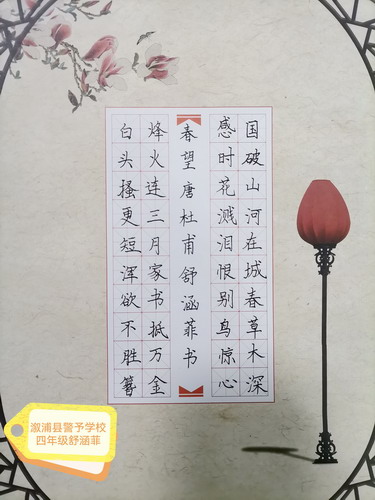 国破山河在城春草木深
感时花溅泪恨别鸟惊心
春望唐杜甫舒涵菲书
烽火连三月家书抵万金
白头搔更短浑欲不胜簪
溆浦县警予学校
四年级舒涵菲